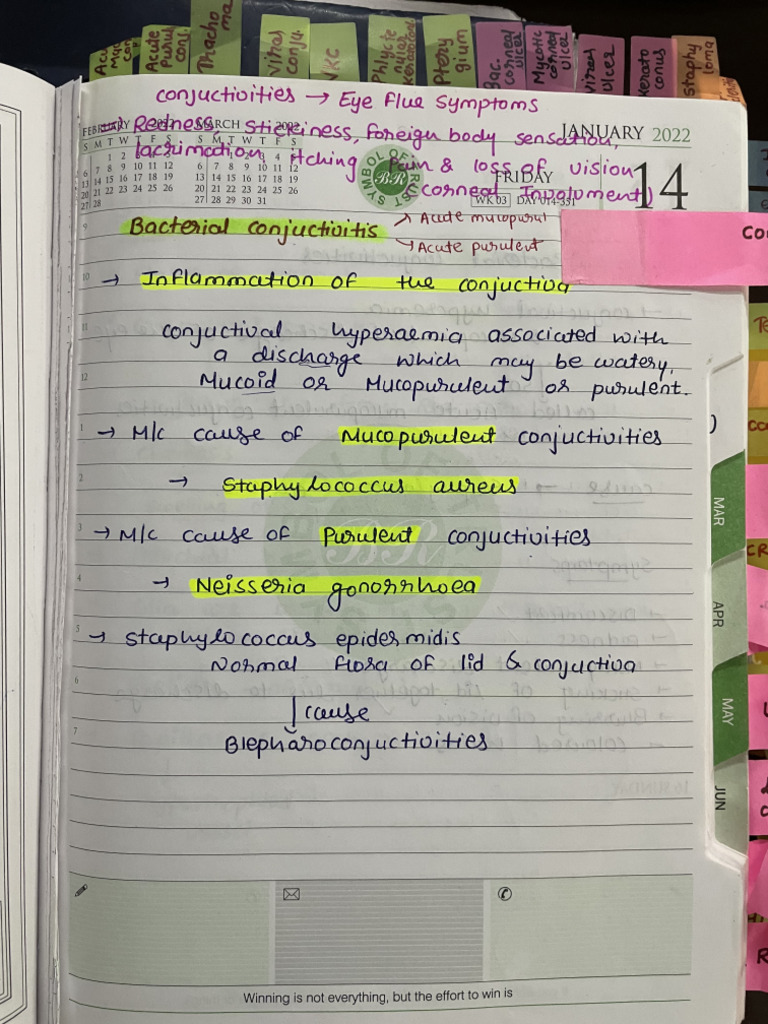 Acute
Purul
conj.
Thacho
ma
Viras
conju
VKC
Phlycte
nular
Ptery
gium
Bac.
corneal
ulcer
Mycotic
corneal
ulcer
viral
ulcer
kerato
conus
staphy
loma
conjuctivities → Eye Flue Symptoms
→ Redness, Stickiness, foreign body sensation,
lacrimation, itching Pain & loss of vision
(corneal Involument)
FEBRUARY 2022 MARCH 2022
S M T W T F S S M T W T F S
1 2 3 4 5 1 2 3 4 5
6 7 8 9 10 11 12 6 7 8 9 10 11 12
13 14 15 16 17 18 19 13 14 15 16 17 18 19
20 21 22 23 24 25 26 20 21 22 23 24 25 26
27 28 27 28 29 30 31
SYMBOL OF TRUST
BR
JANUARY 2022
FRIDAY
14
WK 03 DAY 014-351
Bacterial conjuctivitis → Acute mucopurul
→ Acute purulent
co
9
→ Inflammation of the conjuctiva
10
conjuctival hyperaemia associated with
11
a discharge which may be watery,
Mucoid or Mucopurulent or purulent.
12
→ M/c cause of Mucopurulent conjuctivities
1
→ Staphylococcus aureus
2
→ M/c cause of Purulent conjuctivities
3
→ Neisseria gonorrhoea
4
→ Staphylococcus epidermidis
5
Normal flora of lid & conjuctiva
6
↓ cause
Blepharoconjuctivities
7
MAR
APR
MAY
JUN
CR
Winning is not everything, but the effort to win is